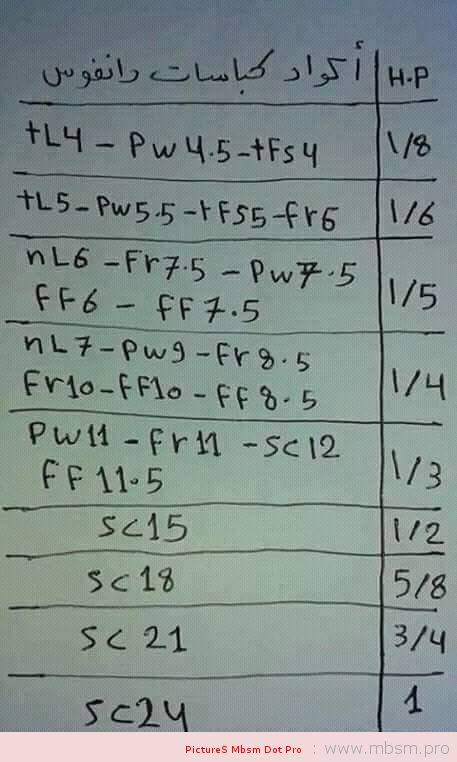 أكواد كباسات دانفوس H.P
tL4 - Pw4.5-tFs4 1/8
tL5-Pw5.5-tFS5-fr6 1/6
nL6 -Fr7.5 - Pw7.5
FF6 - FF7.5 1/5
nL7-Pw9-Fr8.5
Fr10-FF10-FF8.5 1/4
PW11-Fr11 -SC12
FF11.5 1/3
SC15 1/2
SC18 5/8
SC21 3/4
SC24 1
PictureS Mbsm Dot Pro : www.mbsm.pro